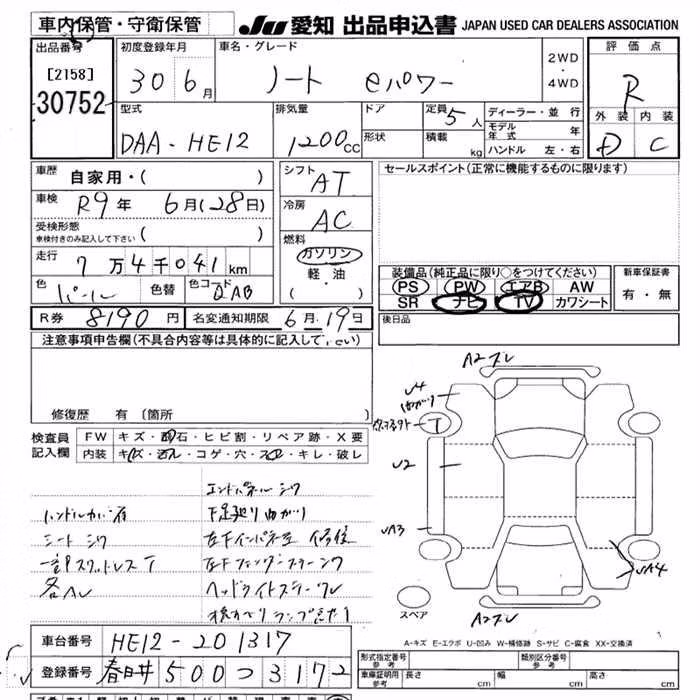 車内保管・守衛保管
JU 愛知 出品申込書 JAPAN USED CAR DEALERS ASSOCIATION
出品番号 初度登録年月 車名・グレード 2WD・4WD 評価点
[2158] 30752
30 6月 ノート eパワー
R
型式 排気量 ドア 定員 5人 ディーラー・並行 外装 内装
DAA-HE12 1200cc 形状 積載 kg モデル年式 年 ハンドル 左・右
D C
車歴 自家用・( ) シフト AT セールスポイント(正常に機能するものに限ります)
車検 R9年 6月(28日) 冷房 AC
受検形態 車検付きのみ記入して下さい ( ) 燃料 ガソリン
走行 7万4千041km 軽・油
装備品(純正品に限り○をつけてください) 新車保証書
色 パール 色替 色コード QAB ( ・ )
PS PW エアB AW 有・無
SR ナビ TV カワシート
R券 8190円 名変通知期限 6月19日 後日品
注意事項申告欄(不具合内容等は具体的に記入して下さい)
修復歴 有 〔箇所 〕
検査員記入欄 FW キズ・飛石・ヒビ割・リペア跡・X要
内装 キズ・汚れ・コゲ・穴・スレ・キレ・破レ
A2スレ
U4
T
U2
UA3
UA4
スペア
A2スレ
エンドパネルシワ
ハンドルカバー有
シート シワ
左下インパネ 修復
ヘッドライトスリーブレ
A-キズ E-エクボ U-凹み W-補修跡 S-サビ C-腐食 XX-交換済
車台番号 HE12-201317
登録番号 春日井 500 つ 3172
形式指定番号 参考 類別区分番号 参考
車庫証明用 参考 長さ cm 幅 cm 高さ cm